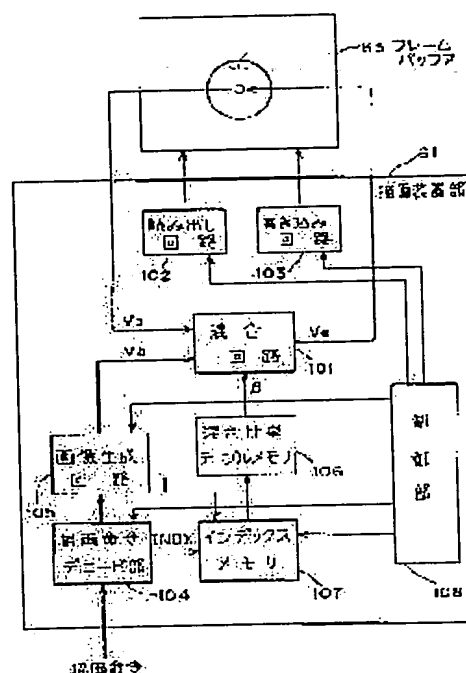 83 フレーム
バッファ
81
描画装置部
読み出し
回路
102
書き込み
回路
103
Va
Vb
混合
回路
101
Vc
β
混合比率
テーブルメモリ
106
画素生成
回路
105
描画命令
デコード部
104
INDX
インデックス
メモリ
107
108
描画命令